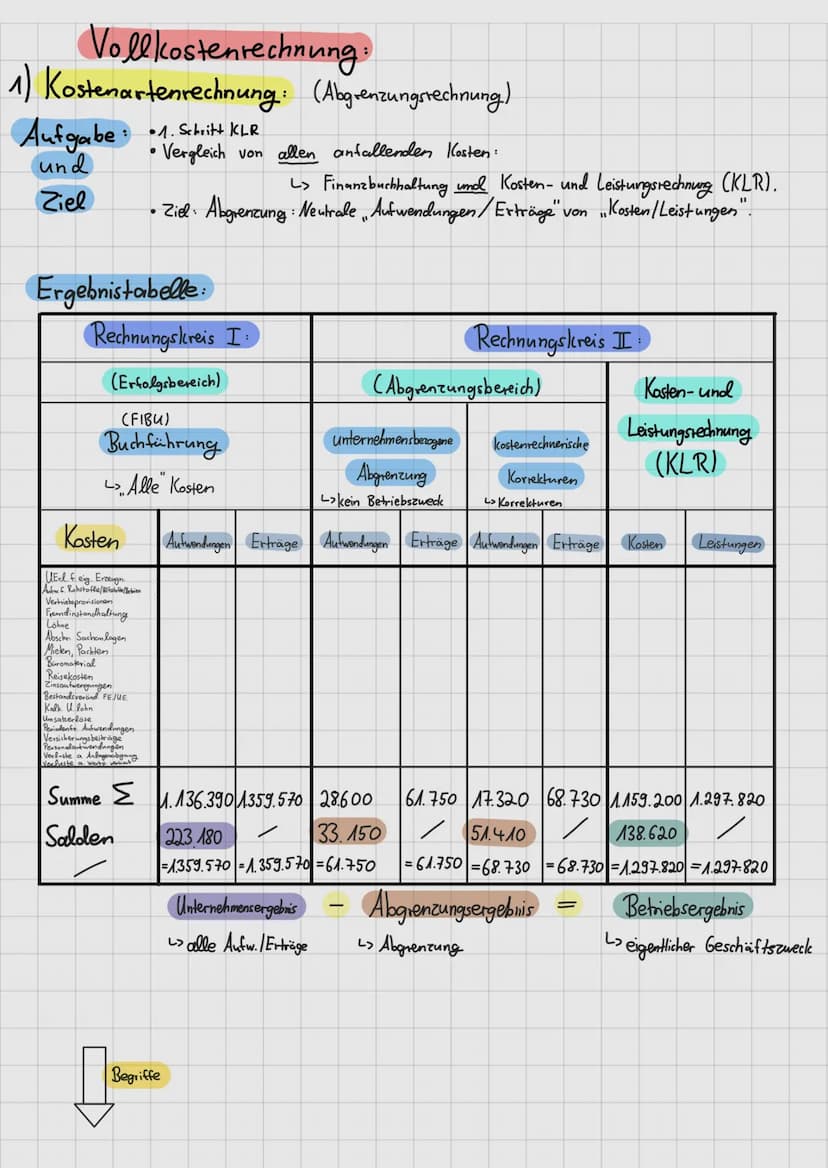 Vollkostenrechnung:
1) Kostenartenrechnung: (Abgrenzungsrechnung)
Aufgabe: • 1. Schritt KLR
und • Vergleich von allen anfallenden Kosten:
↳ Finanzbuchhaltung und Kosten- und Leistungsrechnung (KLR).
Ziel • Ziel: Abgrenzung: Neutrale „Aufwendungen/Erträge" von „Kosten/Leistungen".
Ergebnistabelle:
Rechnungskreis I: Rechnungskreis II:
(Erfolgsbereich) (Abgrenzungsbereich) Kosten- und
Leistungsrechnung
(KLR)
(FIBU)
Buchführung
↳ „Alle" Kosten
unternehmensbezogene
Abgrenzung
↳ kein Betriebszweck
kostenrechnerische
Korrekturen
↳ Korrekturen
Kosten Aufwendungen Erträge Aufwendungen Erträge Aufwendungen Erträge Kosten Leistungen
UErl. f. eig. Erzeugn.
Aufw. f. Rohstoffe
Vertriebsprovisionen
Fremdinstandhaltung
Löhne
Abschr. Sachanlagen
Mieten, Pachten
Büromaterial
Reisekosten
Zinsaufwendungen
Bestandsveränd. FE/UE
Kalk. U. lohn
Umsatzerlöse
Periodenfr. Aufwendungen
Versicherungsbeiträge
Personalaufwendungen
Verluste a. Anlagenabgang
Verluste a.
Summe Σ 1.136.390 1359.570 28.600 61.750 17.320 68.730 1.159.200 1.297.820
Salden 223.180 / 33.150 / 51.410 / 138.620 /
/ =1.359.570 =1.359.570 =61.750 =61.750 =68.730 =68.730 =1.297.820 =1.297.820
Unternehmensergebnis − Abgrenzungsergebnis = Betriebsergebnis
↳ alle Aufw./Erträge ↳ Abgrenzung ↳ eigentlicher Geschäftszweck
Begriffe